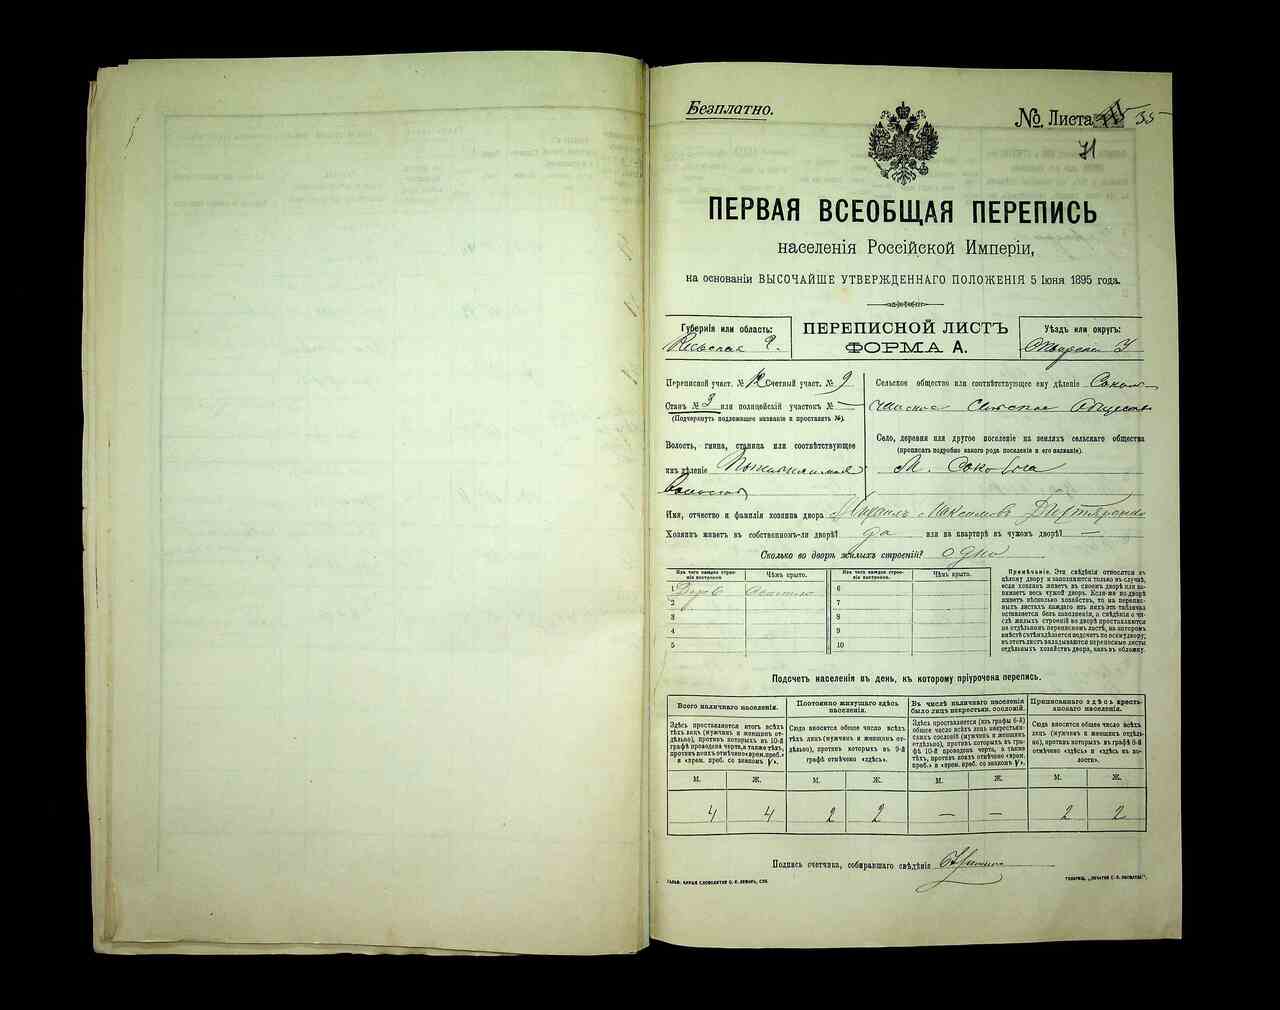 Безплатно.
№ Листа 55
71
ПЕРВАЯ ВСЕОБЩАЯ ПЕРЕПИСЬ
населенія Россійской Имперіи,
на основаніи ВЫСОЧАЙШЕ УТВЕРЖДЕННАГО ПОЛОЖЕНІЯ 5 Іюня 1895 года.
Губернія или область:
ПЕРЕПИСНОЙ ЛИСТЪ
ФОРМА А.
Уѣздъ или округъ:
Переписной участ. № Счетный участ. № 9
Станъ № 3 или полицейскій участокъ № —
(Подчеркнуть подлежащее названіе и проставить №).
Волость, гмина, станица или соотвѣтствующее
имъ дѣленіе
волость
Сельское общество или соотвѣтствующее ему дѣленіе
Общество
Село, деревня или другое поселеніе на земляхъ сельскаго общества
(прописать подробно какого рода поселеніе и его названіе).
М.
Имя, отчество и фамилія хозяина двора Михаилъ Максимовъ
Хозяинъ живетъ въ собственномъ-ли дворѣ? да или на квартирѣ въ чужомъ дворѣ? —
Сколько во дворѣ жилыхъ строеній? одно
Изъ чего каждое строеніе построено. Чѣмъ крыто. Изъ чего каждое строеніе построено. Чѣмъ крыто.
1 6
2 7
3 8
4 9
5 10
Примѣчаніе. Эти свѣдѣнія относятся къ
цѣлому двору и заполняются только въ случаѣ,
если хозяинъ живетъ въ своемъ дворѣ или занимаетъ
весь чужой дворъ. Если-же во дворѣ
живетъ нѣсколько хозяйствъ, то на переписныхъ
листахъ каждаго изъ нихъ эта табличка
оставляется безъ заполненія, а свѣдѣнія о числѣ
жилыхъ строеній во дворѣ проставляются
на отдѣльномъ переписномъ листѣ, на которомъ
вмѣстѣ съ тѣмъ дѣлается подсчетъ по всему двору;
въ этотъ листъ вкладываются переписные листы
отдѣльныхъ хозяйствъ двора, какъ въ обложку.
Подсчетъ населенія въ день, къ которому пріурочена перепись.
Всего наличнаго населенія.
Здѣсь проставляется итогъ всѣхъ
тѣхъ лицъ (мужчинъ и женщинъ отдѣльно),
противъ которыхъ въ 10-й
графѣ проведена черта, а также тѣхъ,
противъ коихъ отмѣчено «врем. преб.»
и «врем. преб. со знакомъ V».
Постоянно живущаго здѣсь
населенія.
Сюда вносится общее число всѣхъ
тѣхъ лицъ (мужчинъ и женщинъ отдѣльно),
противъ которыхъ въ 9-й
графѣ отмѣчено «здѣсь».
Въ числѣ наличнаго населенія
было лицъ некрестьян. сословій.
Здѣсь проставляется (изъ графы 6-й)
общее число лицъ некрестьянскихъ
сословій (мужчинъ и женщинъ
отдѣльно), противъ которыхъ въ графѣ
10-й проведена черта, а также
тѣхъ, противъ коихъ отмѣчено «врем.
преб.» и «врем. преб. со знакомъ V».
Приписаннаго здѣсь крестьянскаго
населенія.
Сюда вносится общее число всѣхъ
лицъ (мужчинъ и женщинъ отдѣльно),
противъ которыхъ въ графѣ 8
отмѣчено «здѣсь» и «здѣсь въ волости».
М. Ж. М. Ж. М. Ж. М. Ж.
4 4 2 2 — — 2 2
Подпись счетчика, собиравшаго свѣдѣнія